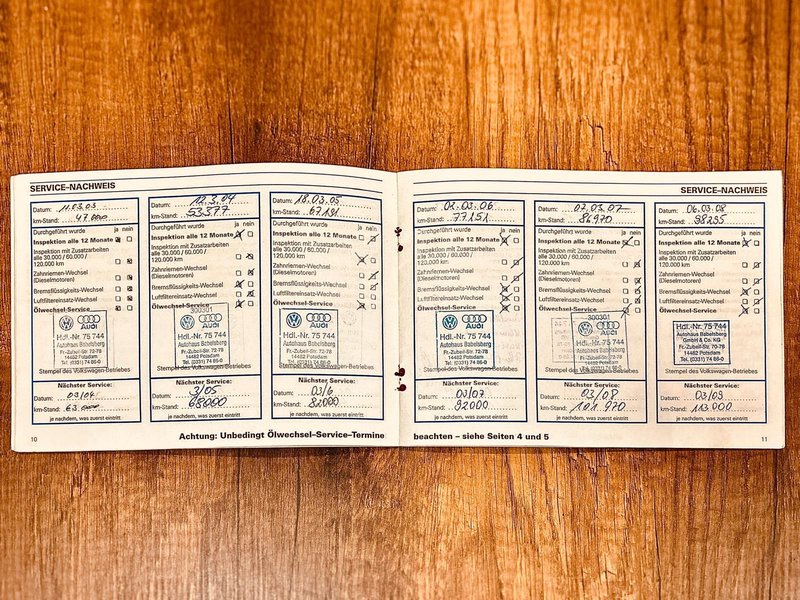 SERVICE-NACHWEIS
Datum: 11.03.03
km-Stand: 47.000
Durchgeführt wurde ja nein
Inspektion alle 12 Monate
Inspektion mit Zusatzarbeiten
alle 30.000 / 60.000 /
120.000 km
Zahnriemen-Wechsel
(Dieselmotoren)
Bremsflüssigkeits-Wechsel
Luftfiltereinsatz-Wechsel
Ölwechsel-Service
Audi
Hdl.-Nr. 75 744
Autohaus Babelsberg
Fr.-Zubeil-Str. 72-78
14482 Potsdam
Tel. (0331) 74 86-0
Stempel des Volkswagen-Betriebes
Nächster Service:
Datum: 03/04
km-Stand: 63.000
je nachdem, was zuerst eintritt
Datum: 12.3.04
km-Stand: 53377
Durchgeführt wurde ja nein
Inspektion alle 12 Monate
Inspektion mit Zusatzarbeiten
alle 30.000 / 60.000 /
120.000 km
Zahnriemen-Wechsel
(Dieselmotoren)
Bremsflüssigkeits-Wechsel
Luftfiltereinsatz-Wechsel
Ölwechsel-Service
300301
Audi
Hdl.-Nr. 75 744
Autohaus Babelsberg
Fr.-Zubeil-Str. 72-78
14482 Potsdam
Tel. (0331) 74 86-0
Stempel des Volkswagen-Betriebes
Nächster Service:
Datum: 3/05
km-Stand: 68000
je nachdem, was zuerst eintritt
Datum: 18.03.05
km-Stand: 67191
Durchgeführt wurde ja nein
Inspektion alle 12 Monate
Inspektion mit Zusatzarbeiten
alle 30.000 / 60.000 /
120.000 km
Zahnriemen-Wechsel
(Dieselmotoren)
Bremsflüssigkeits-Wechsel
Luftfiltereinsatz-Wechsel
Ölwechsel-Service
Audi
Hdl.-Nr. 75 744
Autohaus Babelsberg
Fr.-Zubeil-Str. 72-78
14482 Potsdam
Tel. (0331) 74 86-0
Stempel des Volkswagen-Betriebes
Nächster Service:
Datum: 03/6
km-Stand: 82000
je nachdem, was zuerst eintritt
10
Achtung: Unbedingt Ölwechsel–Service–Termine
SERVICE-NACHWEIS
Datum: 02.03.06
km-Stand: 77151
Durchgeführt wurde ja nein
Inspektion alle 12 Monate
Inspektion mit Zusatzarbeiten
alle 30.000 / 60.000 /
120.000 km
Zahnriemen-Wechsel
(Dieselmotoren)
Bremsflüssigkeits-Wechsel
Luftfiltereinsatz-Wechsel
Ölwechsel-Service
Audi
Hdl.-Nr. 75 744
Autohaus Babelsberg
Fr.-Zubeil-Str. 72-78
14482 Potsdam
Tel. (0331) 74 86-0
Stempel des Volkswagen-Betriebes
Nächster Service:
Datum: 03/07
km-Stand: 92000
je nachdem, was zuerst eintritt
Datum: 07.03.07
km-Stand: 86970
Durchgeführt wurde ja nein
Inspektion alle 12 Monate
Inspektion mit Zusatzarbeiten
alle 30.000 / 60.000 /
120.000 km
Zahnriemen-Wechsel
(Dieselmotoren)
Bremsflüssigkeits-Wechsel
Luftfiltereinsatz-Wechsel
Ölwechsel-Service
300301
Audi
Hdl.-Nr. 75 744
Autohaus Babelsberg
Fr.-Zubeil-Str. 72-78
14482 Potsdam
Tel. (0331) 74 86-0
Stempel des Volkswagen-Betriebes
Nächster Service:
Datum: 03/08
km-Stand: 101.970
je nachdem, was zuerst eintritt
Datum: 06.03.08
km-Stand: 98295
Durchgeführt wurde ja nein
Inspektion alle 12 Monate
Inspektion mit Zusatzarbeiten
alle 30.000 / 60.000 /
120.000 km
Zahnriemen-Wechsel
(Dieselmotoren)
Bremsflüssigkeits-Wechsel
Luftfiltereinsatz-Wechsel
Ölwechsel-Service
Audi
Hdl.-Nr. 75 744
Autohaus Babelsberg
GmbH & Co. KG
Fr.-Zubeil-Str. 70-78
14482 Potsdam
Tel. (0331) 74 86-0
Stempel des Volkswagen-Betriebes
Nächster Service:
Datum: 03/09
km-Stand: 113000
je nachdem, was zuerst eintritt
beachten – siehe Seiten 4 und 5
11